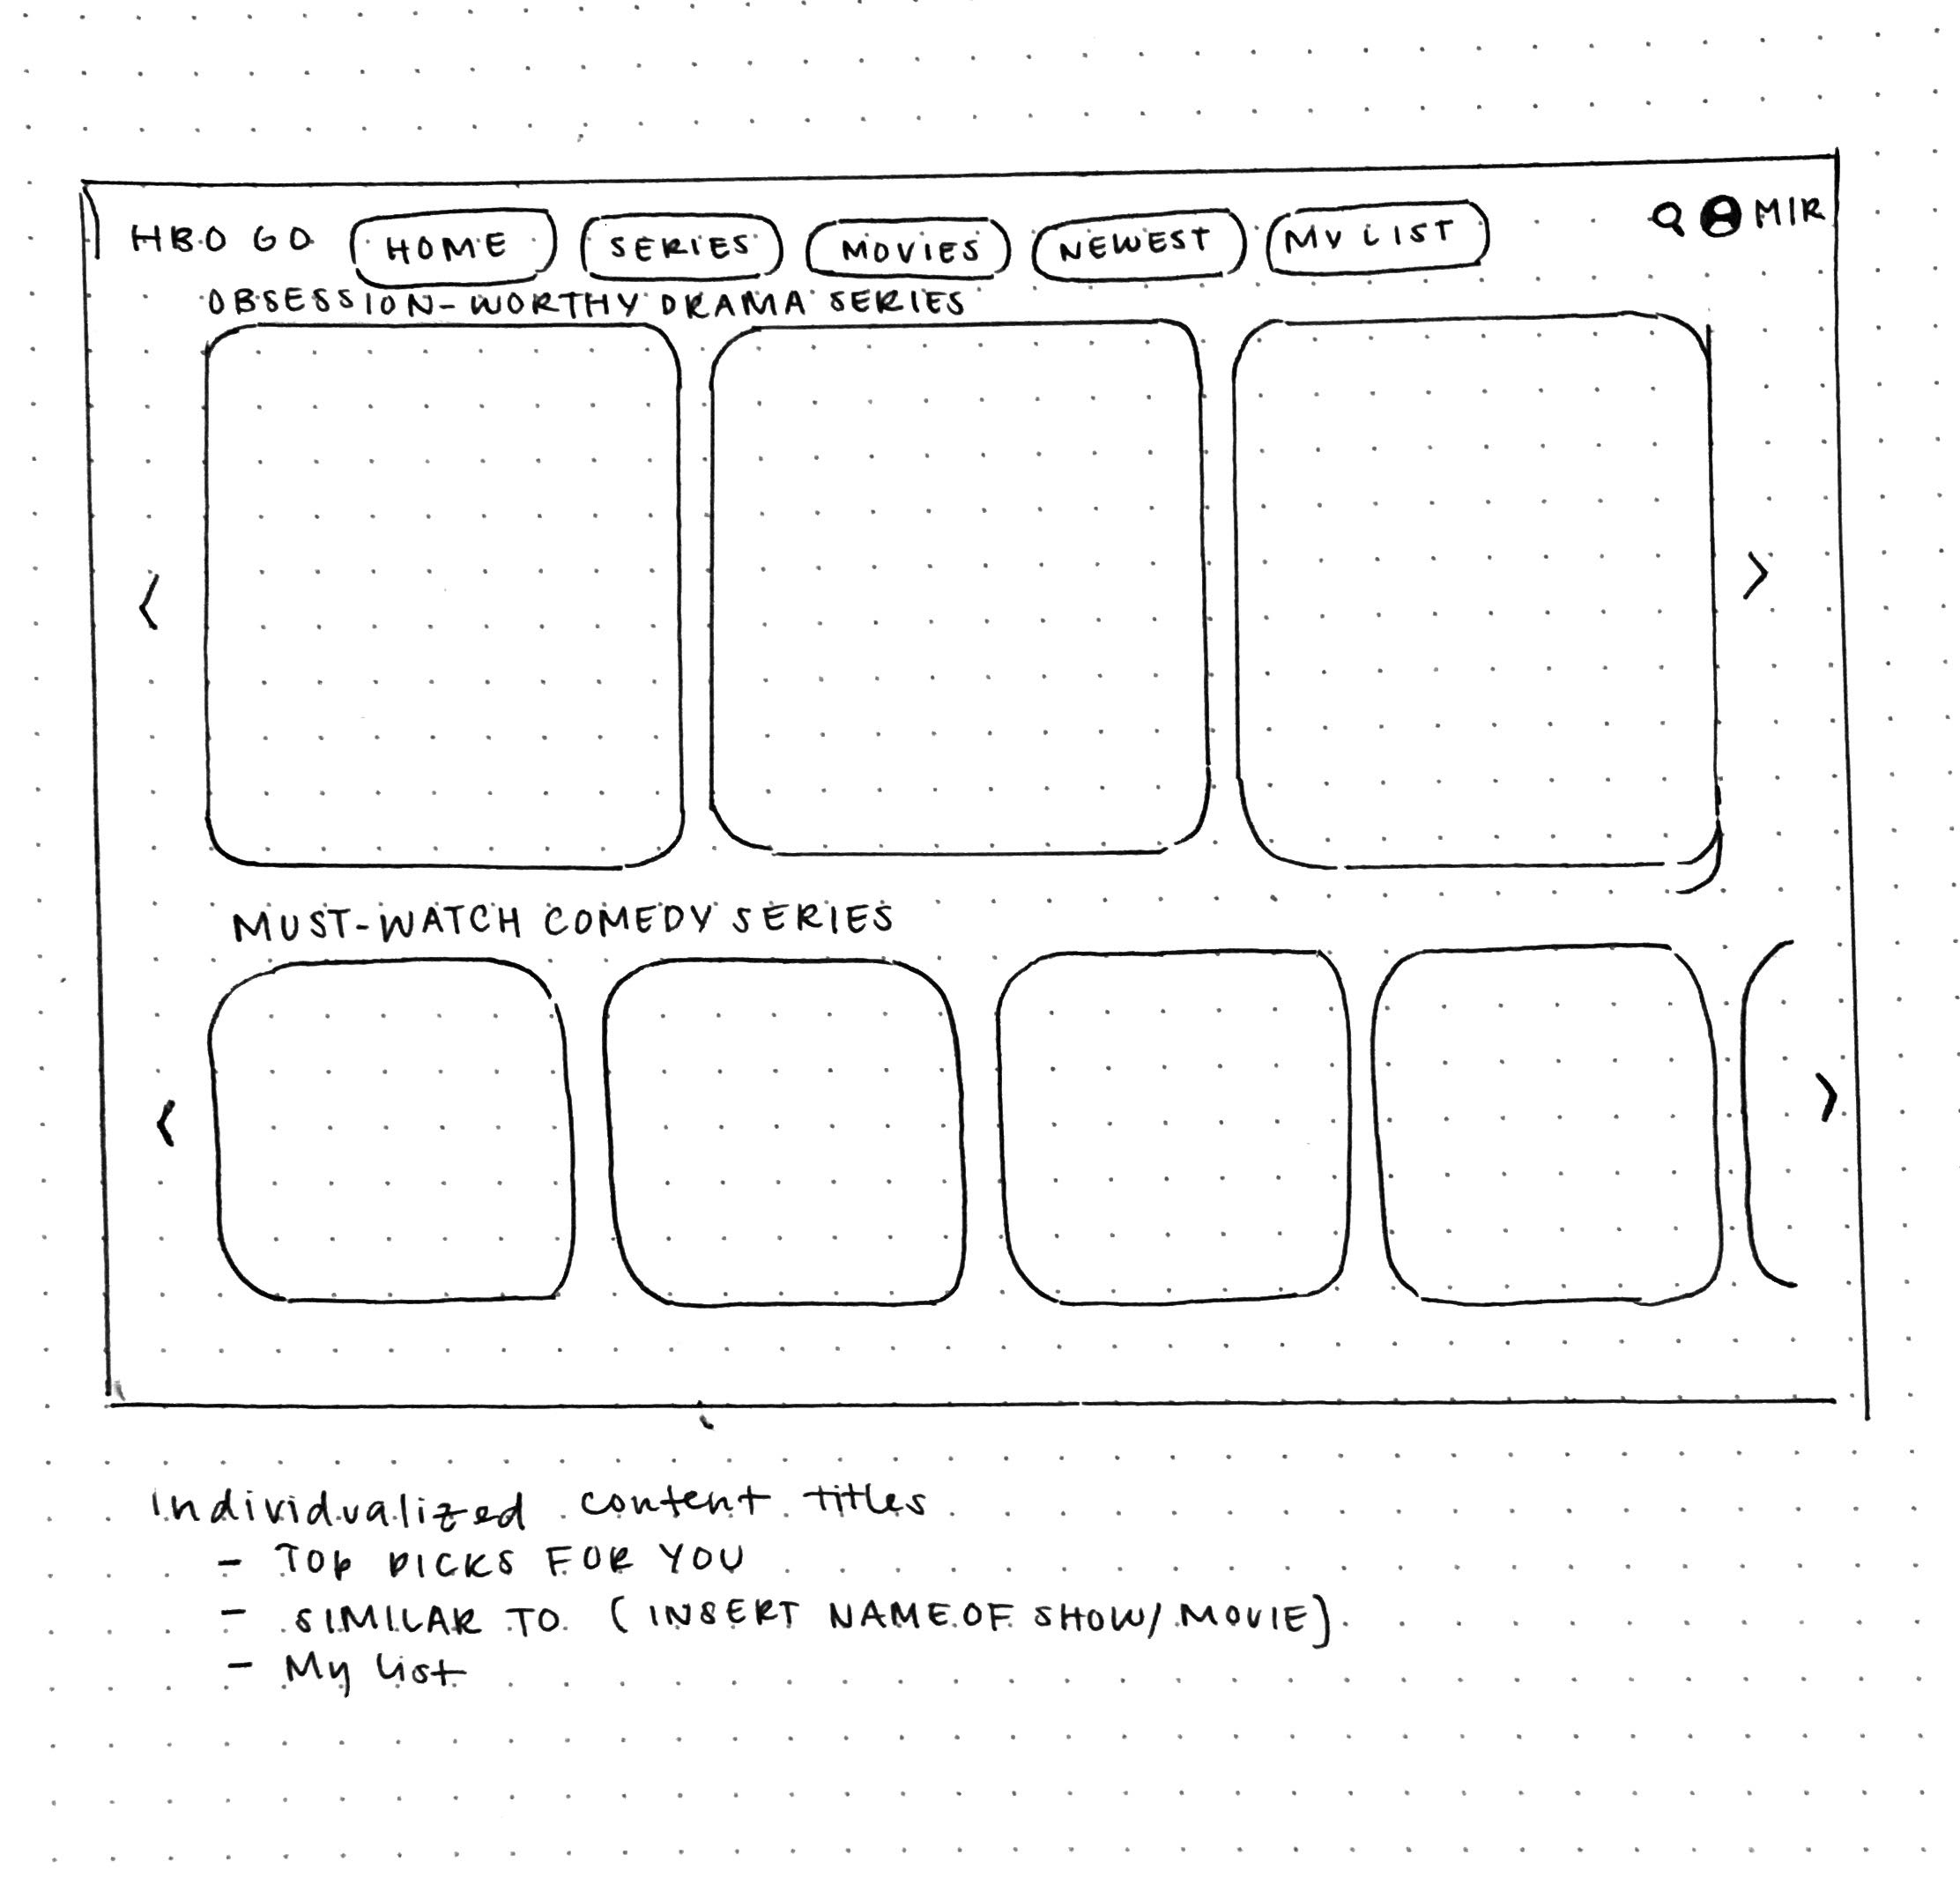 HBO GO HOME SERIES MOVIES NEWEST MY LIST MIR
OBSESSION-WORTHY DRAMA SERIES
< >
MUST-WATCH COMEDY SERIES
< >
Individualized content titles
- TOP PICKS FOR YOU
- SIMILAR TO (INSERT NAME OF SHOW/MOVIE)
- My list